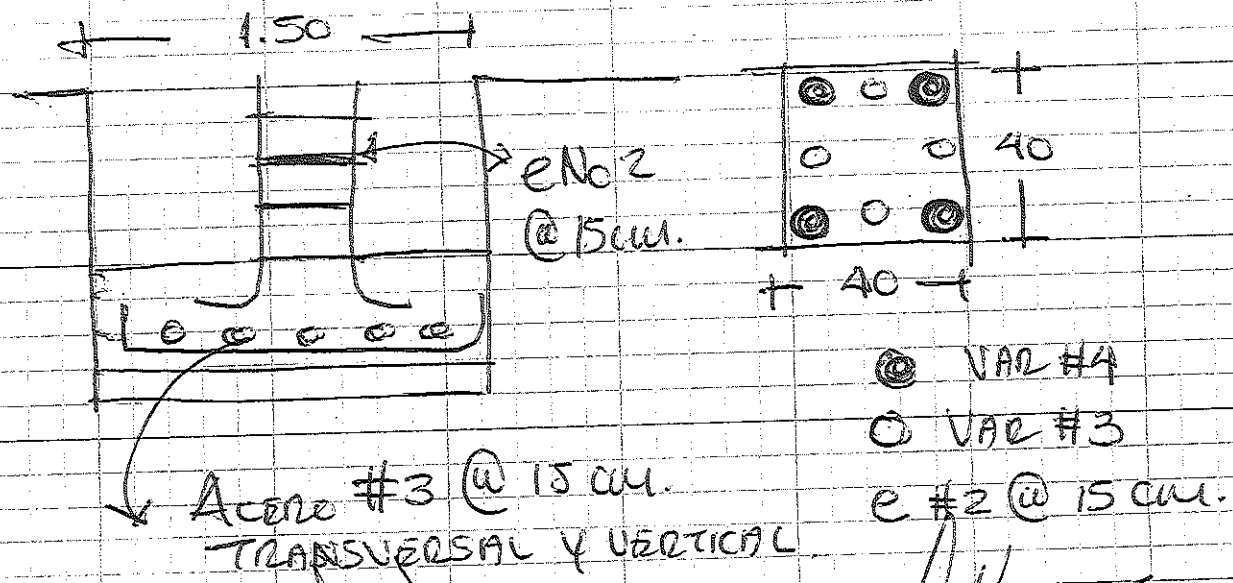 1.50
eNo2
@ 15cm.
40
40
VAR #4
VAR #3
e #2 @ 15 cm.
Acero #3 @ 15 cm.
TRANSVERSAL Y VERTICAL.